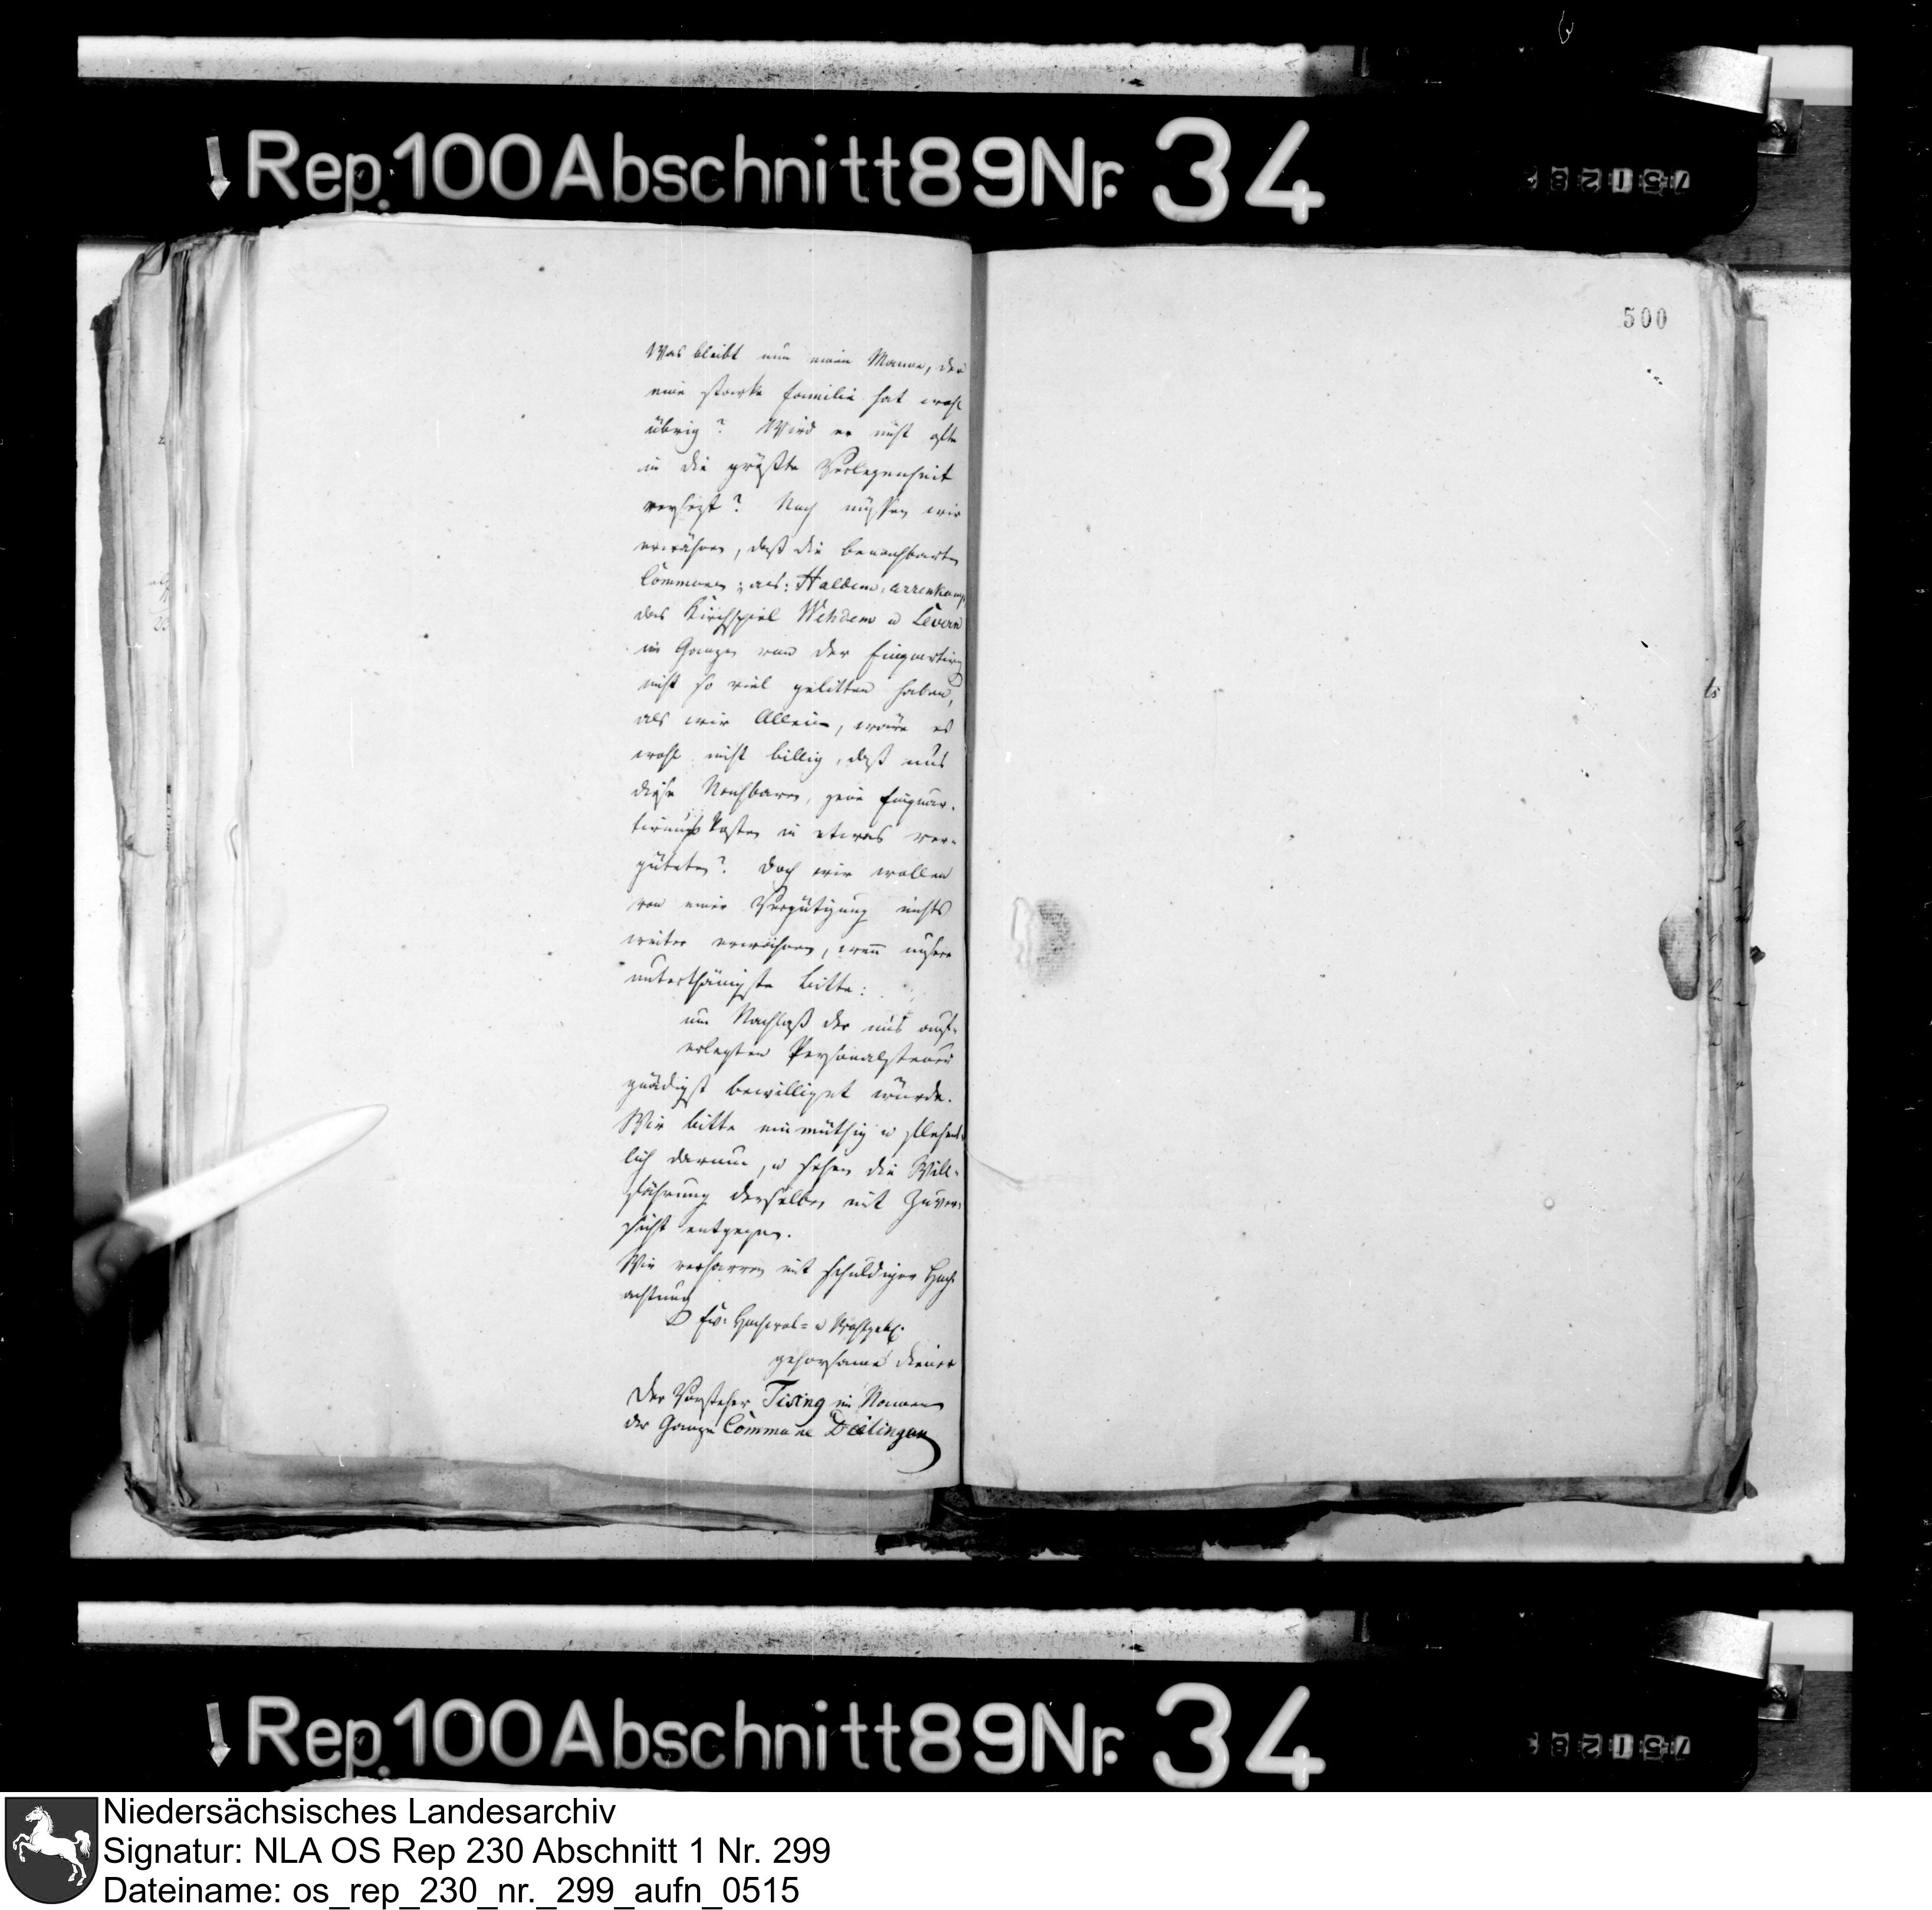 Rep. 100 Abschnitt 89 Nr. 34
500
Was bleibt nun einem Manne, der
eine starke Familie hat wohl
übrig? Wird er nicht ofte
in die größte Verlegenheit
versezt? Noch müssen wir
erwähnen, daß die benachbarten
Commonen; als: Haldem, Arrenkamp,
das Kirchspiel Wehdem u Levern
im Ganzen von der Einquartirung
nicht so viel gelitten haben,
als wir Allein, wäre es
wohl nicht billig, daß uns
diese Nachbaren, jene Einquar-
tirungs Kosten in etwas ver-
güteten? Doch wir wollen
von einer Vergütigung nichts
weiter erwähnen, wenn unsere
unterthänigste Bitte:
um Nachlaß der uns auf-
erlegten Personalsteuer
gnädigst bewilliget würde.
Wir bitte einmüthig u flehent-
lich darum, u sehen die Will-
fährung derselben mit Zuver-
sicht entgegen.
Wir verharren mit schuldiger Hoch
achtung
Ew: Hochwol- u Wohlgeb.
gehorsame Diener
Der Vorsteher Tising im Namen
der Ganzen Commune Dielingen
Rep. 100 Abschnitt 89 Nr. 34
Niedersächsisches Landesarchiv
Signatur: NLA OS Rep 230 Abschnitt 1 Nr. 299
Dateiname: os_rep_230_nr._299_aufn_0515